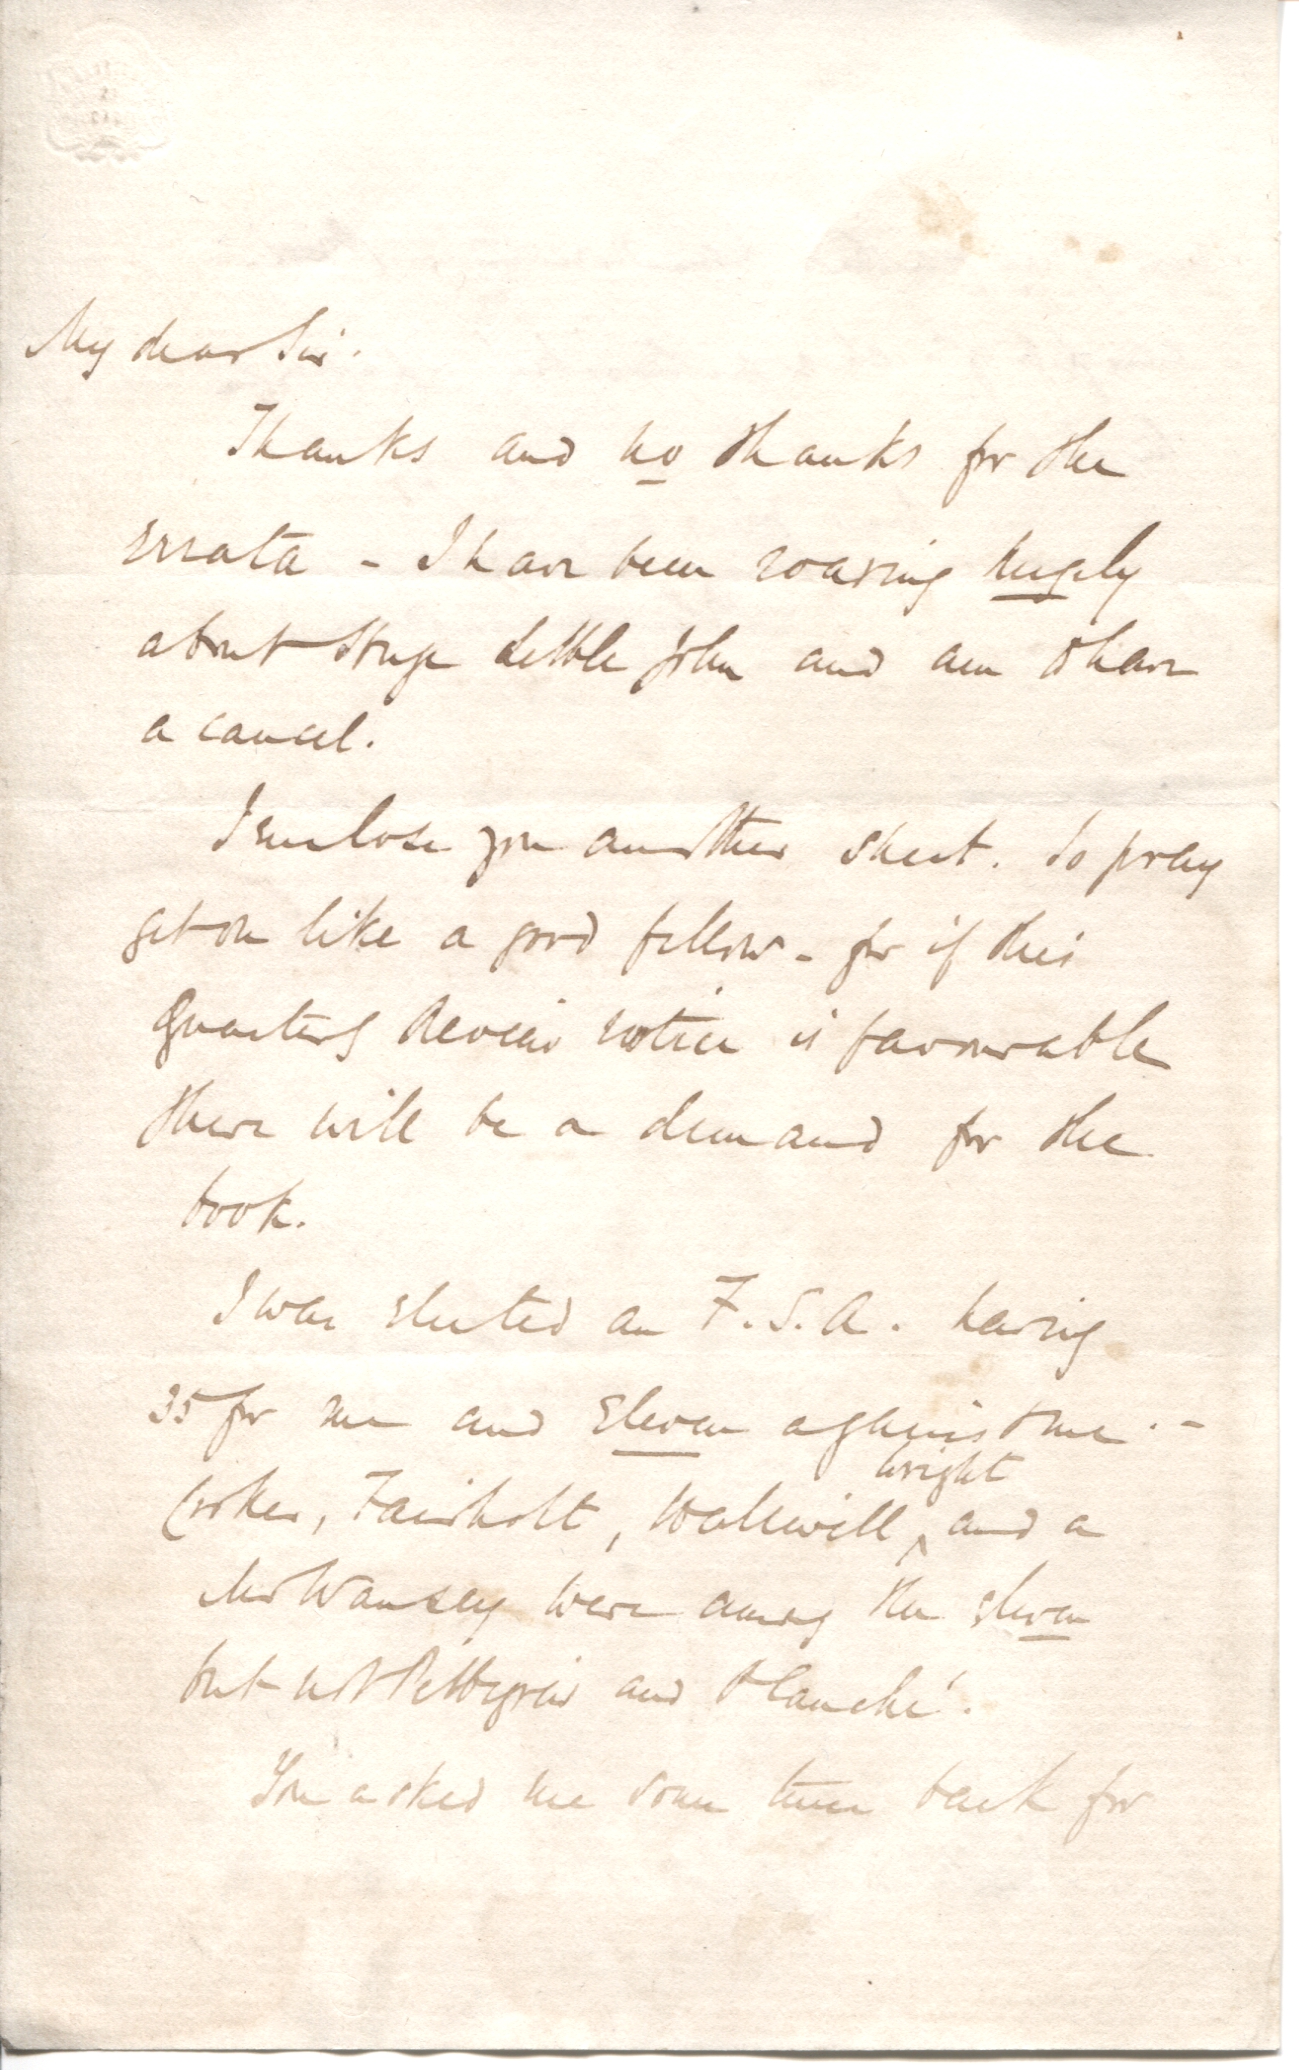 My dear Sir.
Thanks and no thanks for the
errata - I have been roaring hugely
about Huge Little John and am to have
a cancel.
I enclose you another sheet. So pray
get on like a good fellow - for if this
Quarterly Review notice is favourable
there will be a demand for the
book.
I was elected an F.S.A. having
35 for me and eleven against me. -
Croker, Fairholt, wright
and a
Mr Wansey were among the eleven
but not Pettigrew and Planché.
You asked me some time back for